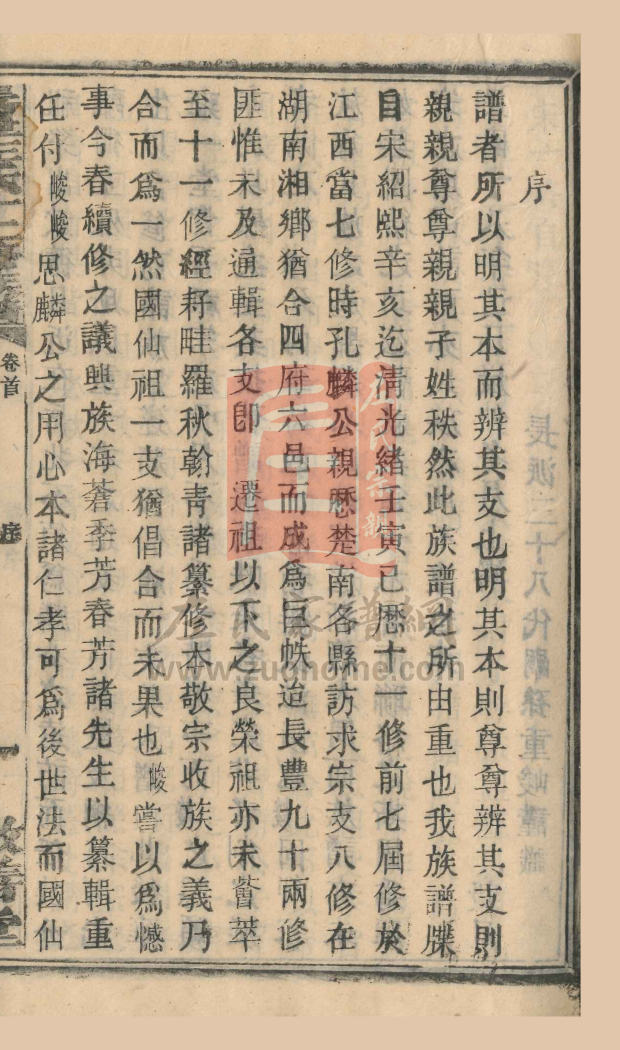 序
譜者所以明其本而辨其支也明其本則尊尊辨其支則
親親尊尊親親子姓秩然此族譜之所由重也我族譜牒
自宋紹熙辛亥迄清光緒壬寅已歷十一修前七屆修於
江西當七修時孔麟公親歷楚南各縣訪求宗支八修在
湖南湘鄉猶合四府六邑而成爲巨帙迨長豐九十兩修
匪惟未及通輯各支即 遷祖以下之良榮祖亦未薈萃
至十一修經耔畦羅秋翰青諸纂修本敬宗收族之義乃
合而爲一然國仙祖一支猶倡合而未果也峻嘗以爲憾
事今春續修之議興族海蒼季芳春芳諸先生以纂輯重
任付峻峻思麟公之用心本諸仁孝可爲後世法而國仙
卷首
序
一
敦善堂
www.zughome.com